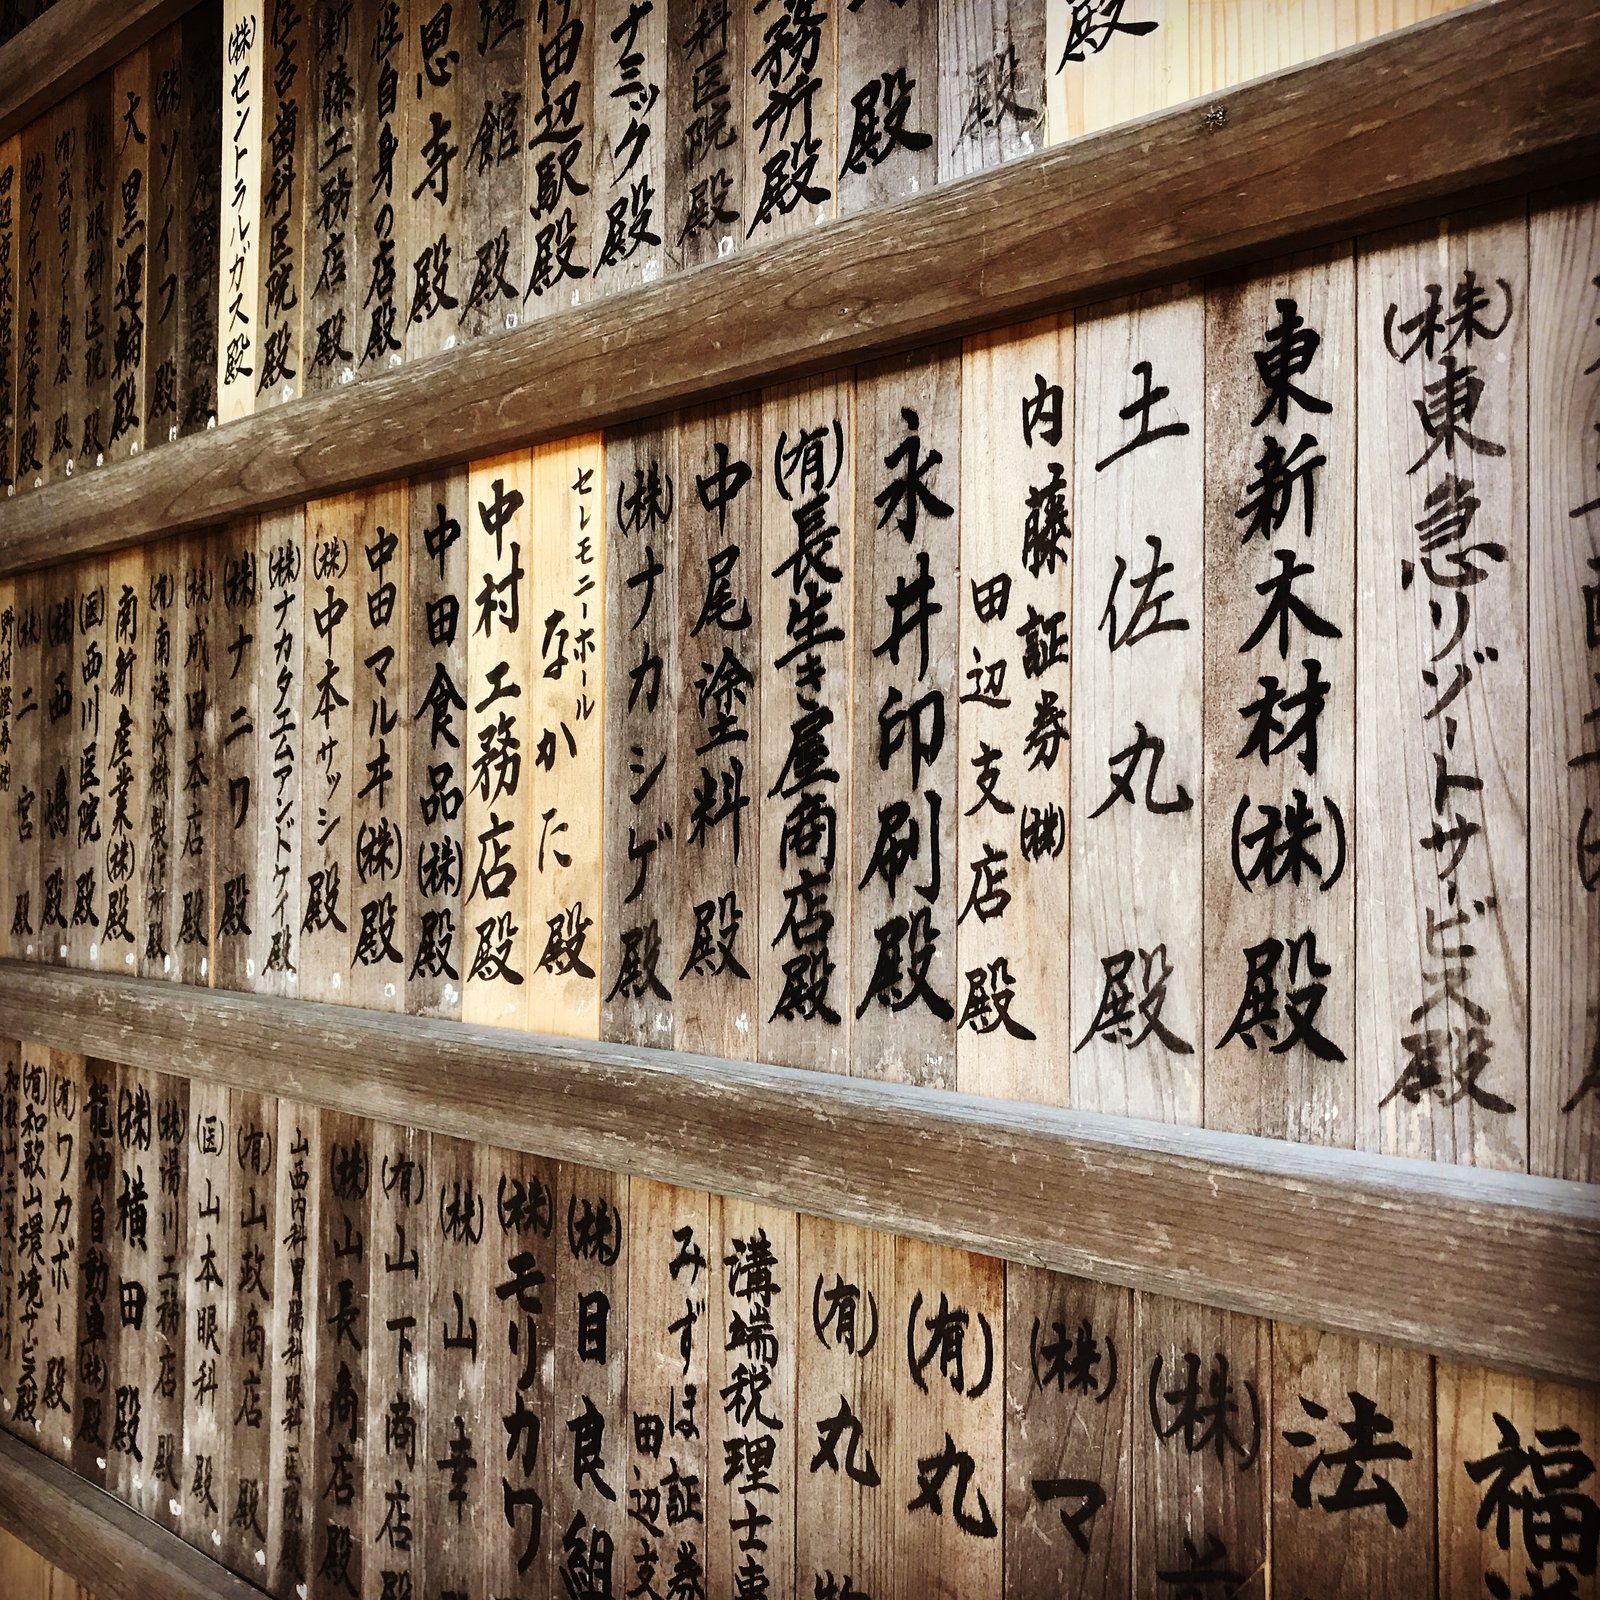 殿
殿
殿
務所殿
科医院殿
ナミック殿
田辺駅殿
館 殿
恩寺 殿
性自身の店殿
新藤工務店 殿
住吉歯科医院殿
(株)セントラルガス殿
(株)ソイフ 殿
大黒運輸殿
眼科医院 殿
(有)武田テント商会 殿
(株)タケヤ産業殿
(株)東急リゾートサービス殿
東新木材(株)殿
土佐丸 殿
内藤証券(株)
田辺支店 殿
永井印刷殿
(有)長生き屋商店殿
中尾塗料 殿
(株)ナカシゲ殿
セレモニーホール
なかた 殿
中村工務店殿
中田食品(株)殿
中田マルヰ(株)殿
(株)中本サッシ 殿
(株)ナカタエムアンドケイ殿
(株)ナニワ 殿
(株)成田本店 殿
(有)南海冷機製作所殿
南新産業(株)殿
(医)西川医院 殿
(株)西嶋 殿
(株)二宮 殿
福
法
(株)
(株)マ
(有)丸
(有)丸
溝端税理士事
みずほ証券
田辺支
(株)目良組
(株)モリカワ
(株)山幸
(有)山下商店 殿
(株)山長商店殿
山西内科胃腸科眼科医院 殿
(有)山政商店 殿
(医)山本眼科 殿
(株)湯川工務店 殿
(株)横田 殿
龍神自動車(株)殿
(有)ワカボー 殿
(有)和歌山環境サービス殿